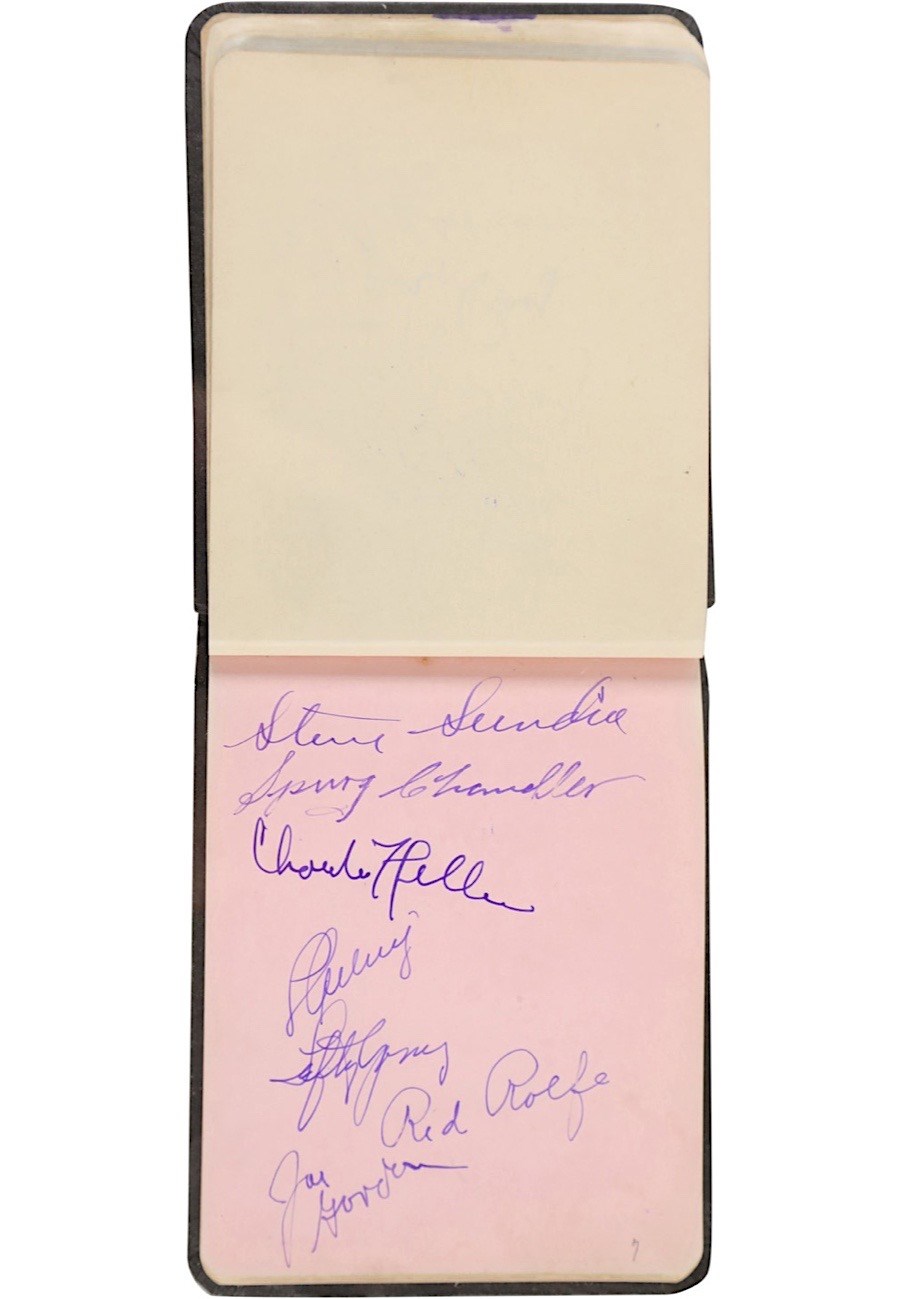 Steve Sundra
Spurg Chandler
Charlie Keller
Lefty Gomez
Red Rolfe
Joe
Gordon